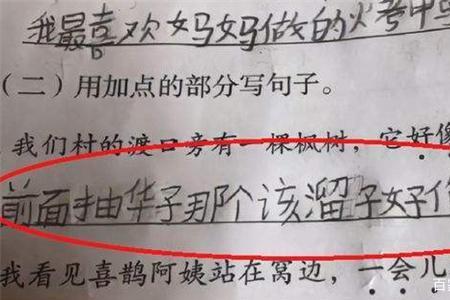 我最喜欢妈妈做的火考中
（二）用加点的部分写句子。
我们村的渡口旁有一棵枫树，它好像
前面抽华子那个该溜子好
我看见喜鹊阿姨站在窝边，一会儿